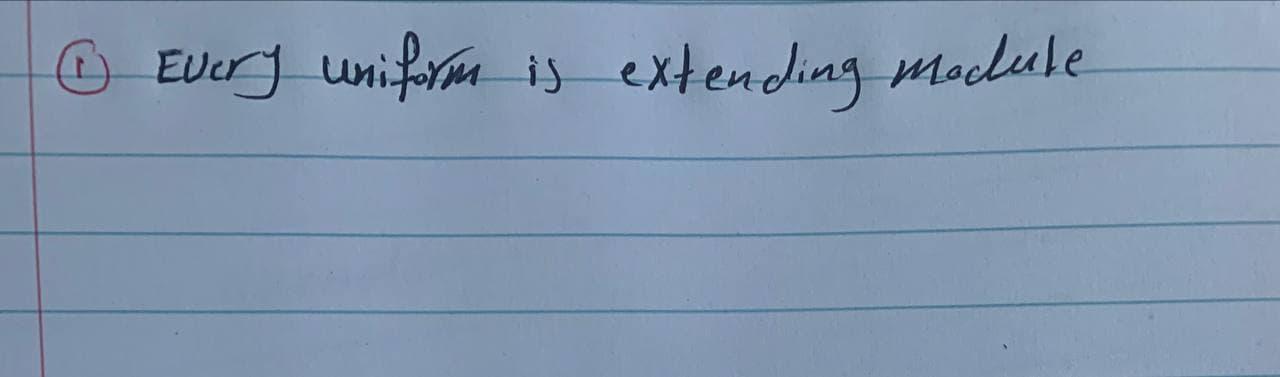 ① Every uniform is extending module